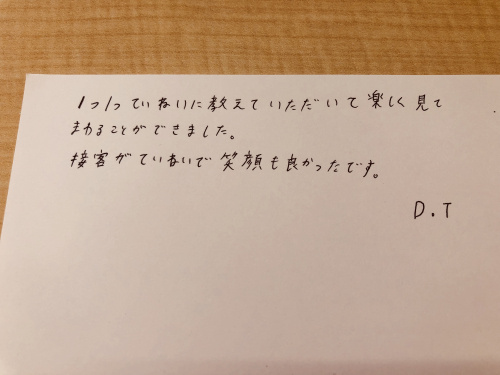 1つ1つていねいに教えていただいて楽しく見て
まわることができました。
接客がていねいで笑顔も良かったです。
D.T